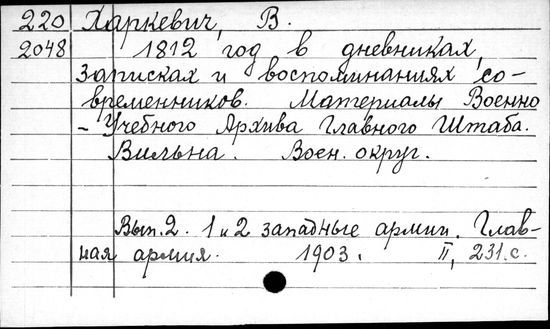 220 Харкевич, В.
2048 1812 год в дневниках,
записках и воспоминаниях со-
временников. Материалы Военно
- Учебного Архива Главного Штаба.
Вильна. Воен. округ.
Вып. 2. 1 и 2 западные армии. Глав-
ная армия. 1903. II, 231 с.